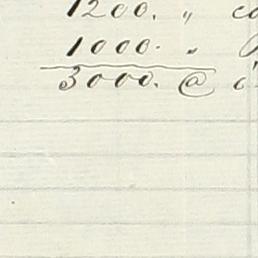 1200. "
1000. "
3000. @